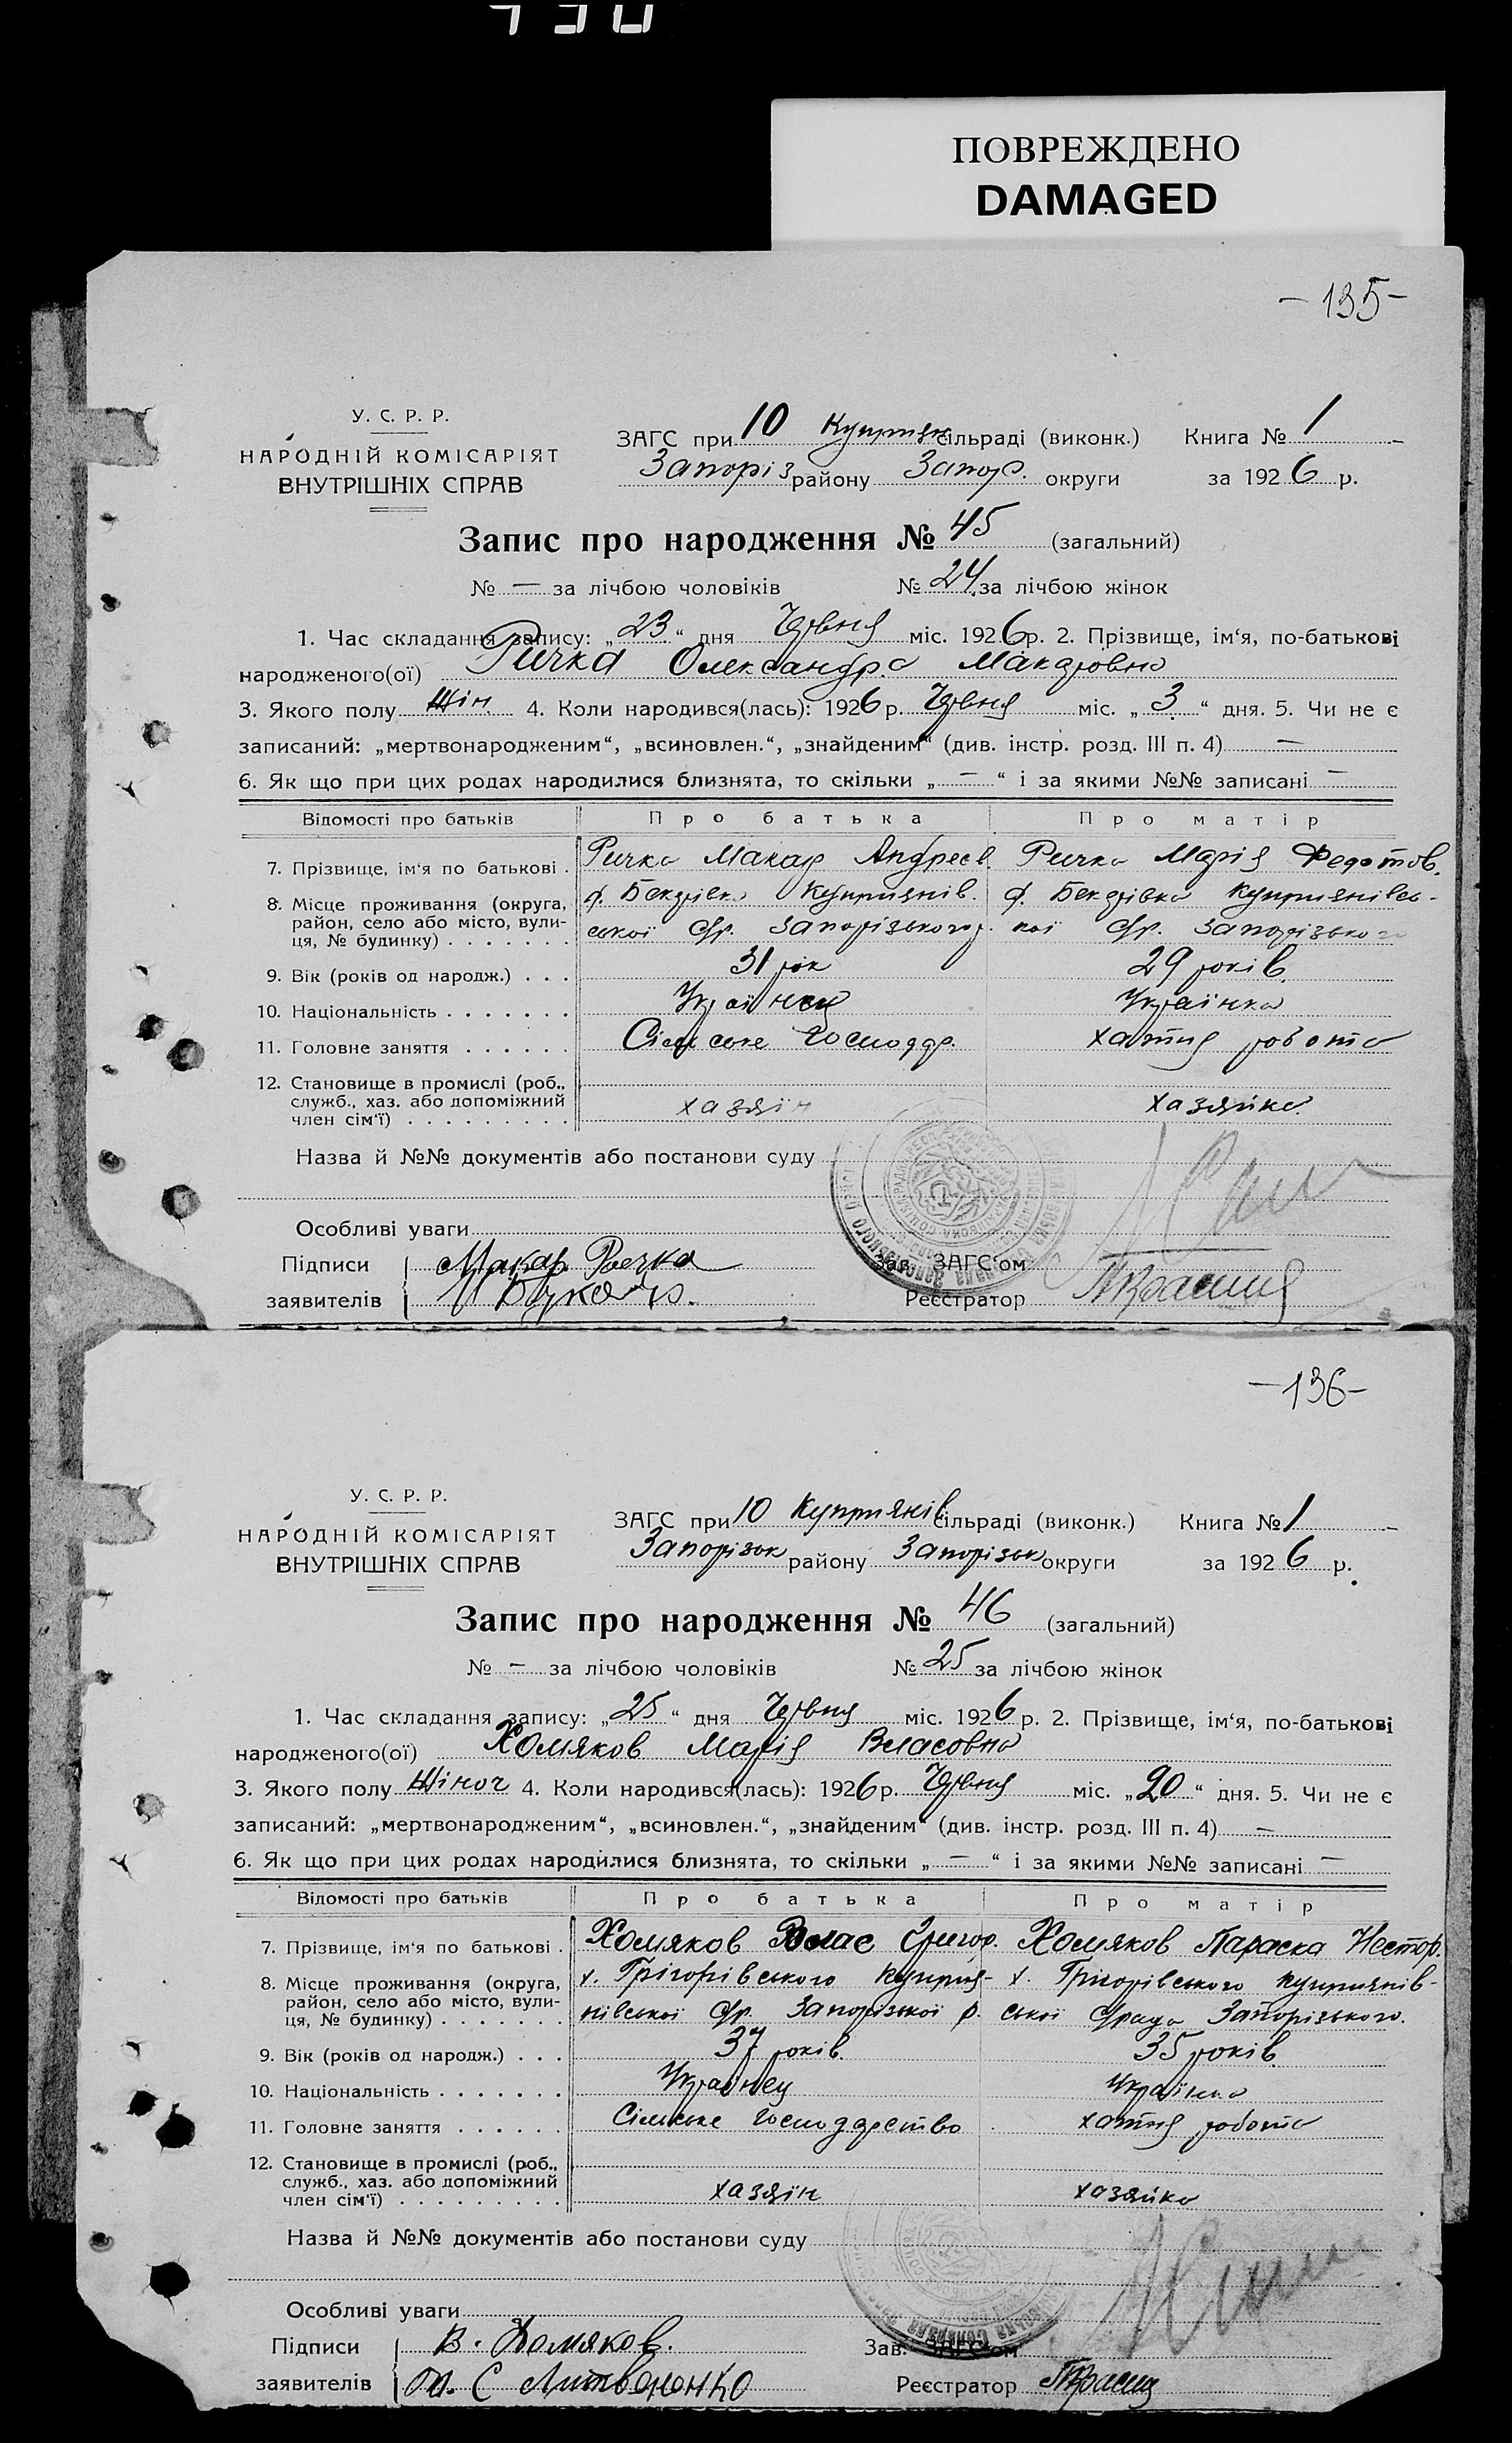 ПОВРЕЖДЕНО
DAMAGED
–135–
У. С. Р. Р.
НАРОДНІЙ КОМІСАРІЯТ
ВНУТРІШНІХ СПРАВ
ЗАГС при 10 Куприян сільраді (виконк.) Книга № 1
Запоріз району Запор. округи за 1926 р.
Запис про народження № 45 (загальний)
№ — за лічбою чоловіків № 24 за лічбою жінок
1. Час складання запису: „23“ дня Червня міс. 1926 р. 2. Прізвище, ім‘я, по-батькові
народженого(ої) Ричка Олександра Макаровна
3. Якого полу Жін. 4. Коли народився(лась): 1926 р. Червня міс. „3“ дня. 5. Чи не є
записаний: „мертвонародженим“, „всиновлен.“, „знайденим“ (див. інстр. розд. III п. 4) —
6. Як що при цих родах народилися близнята, то скільки „—“ і за якими №№ записані —
Відомості про батьків Про батька Про матір
7. Прізвище, ім‘я по батькові . Ричка Макар Андреев. Ричка Марія Федотов.
8. Місце проживання (округа, х. Бекарівка Куприянів. х. Бекарівка Куприянівсь-
район, село або місто, вули- ської С/р. Запорізького р. кої С/р. Запорізького
ця, № будинку) . . . . . . .
9. Вік (років од народж.) . . . 31 рік 29 років
10. Національність . . . . . . . Українец Українка
11. Головне заняття . . . . . . Сільське Господар. хатня робота
12. Становище в промислі (роб.,
служб., хаз. або допоміжний хазяін хазяйка
член сім‘ї) . . . . . . . . .
Назва й №№ документів або постанови суду
Особливі уваги
Підписи Макар Рычка Зав. ЗАГС‘ом
заявителів Реєстратор
–136–
У. С. Р. Р.
НАРОДНІЙ КОМІСАРІЯТ
ВНУТРІШНІХ СПРАВ
ЗАГС при 10 Куприянів сільраді (виконк.) Книга № 1
Запорізьк району Запорізьк округи за 1926 р.
Запис про народження № 46 (загальний)
№ — за лічбою чоловіків № 25 за лічбою жінок
1. Час складання запису: „25“ дня Червня міс. 1926 р. 2. Прізвище, ім‘я, по-батькові
народженого(ої) Хомяков Марія Власовна
3. Якого полу Жіноч 4. Коли народився(лась): 1926 р. Червня міс. „20“ дня. 5. Чи не є
записаний: „мертвонародженим“, „всиновлен.“, „знайденим“ (див. інстр. розд. III п. 4) —
6. Як що при цих родах народилися близнята, то скільки „—“ і за якими №№ записані —
Відомості про батьків Про батька Про матір
7. Прізвище, ім‘я по батькові . Хомяков Влас Григор. Хомяков Параска Нестор.
8. Місце проживання (округа, х. Грігорівського Куприя- х. Грігорівського Куприянів-
район, село або місто, вули- нівської С/р. Запорізької р. ської С/рада Запорізького.
ця, № будинку) . . . . . . .
9. Вік (років од народж.) . . . 37 років. 35 років
10. Національність . . . . . . . Українец Українка
11. Головне заняття . . . . . . Сільське Господарство хатня робота
12. Становище в промислі (роб.,
служб., хаз. або допоміжний хазяін хазяйка
член сім‘ї) . . . . . . . . .
Назва й №№ документів або постанови суду
Особливі уваги
Підписи В. Хомяков. Зав. ЗАГС‘ом
заявителів С Литвоненко Реєстратор